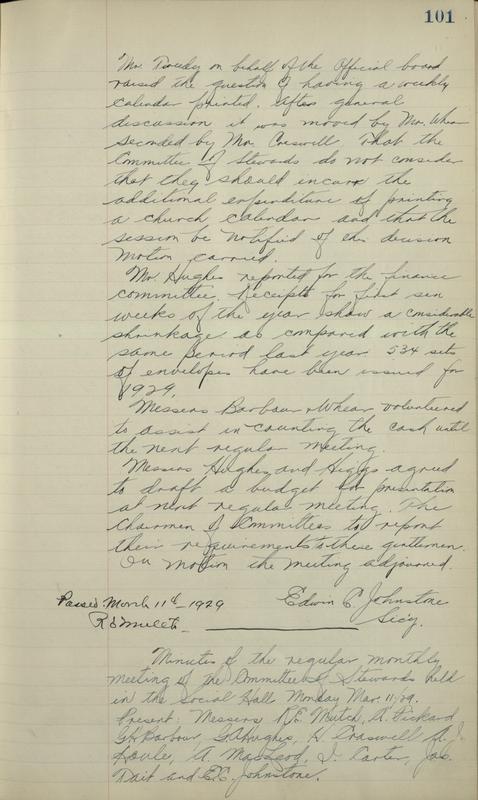 101
Mr. Tweedy on behalf of the Official board
raised the question of having a weekly
calendar printed. After general
discussion it was moved by Mr. Whear
seconded by Mr. Creswill, That the
Committee of Stewards do not consider
that they should incurr the
additional expenditure of printing
a church calendar and that the
session be notified of this decision
Motion carried.
Mr. Hughes reported for the finance
committee. Receipts for first six
weeks of the year show a considerable
shrinkage as compared with the
same period last year. 534 sets
of envelopes have been issued for
1929.
Messers Barbour & Whear volunteered
to assist in counting the cash until
the next regular meeting.
Messers Hughes and Higgs agreed
to draft a budget for presentation
at next regular meeting. The
Chairmen of Committees to report
their requirements to these gentlemen.
On motion the meeting adjourned.
Edwin C. Johnstone
Passed March 11th 1929
Sec'y.
R E Mutch
Minutes of the regular monthly
meeting of the Committee of Stewards held
in the Social Hall Monday Mar. 11/29.
Present: Messers R.E. Mutch, A. Pickard
G.H. Barbour, G.A. Hughes, H. Craswell, A. J.
Houle, A. MacLeod, J. Carter, Jas.
Tait and E.C. Johnstone.